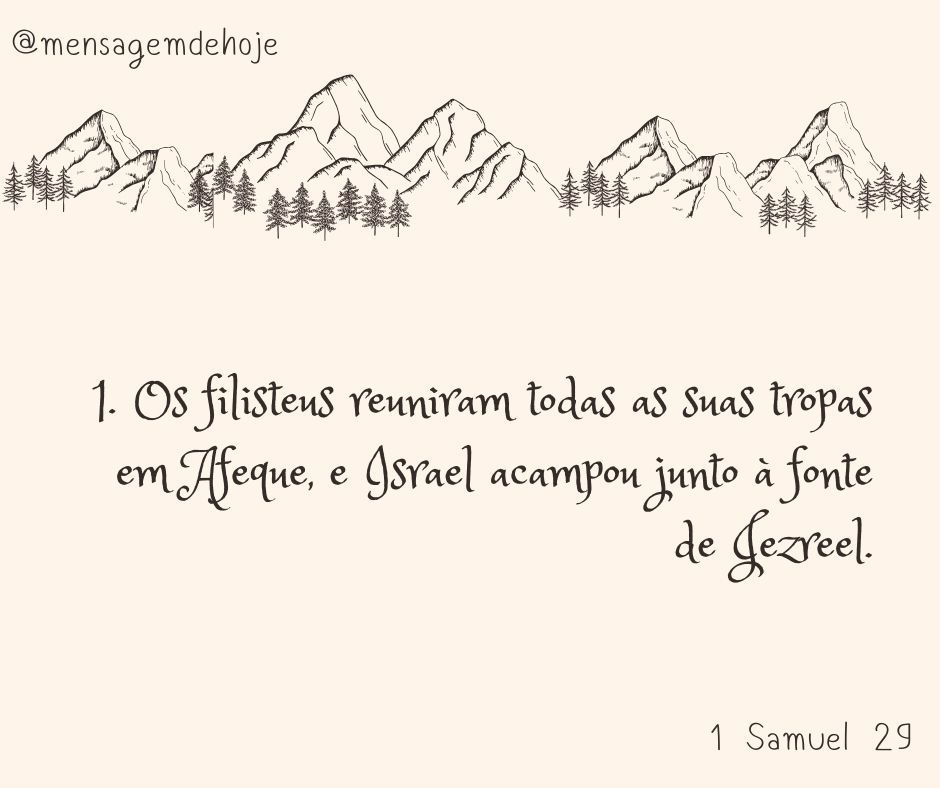 @mensagemdehoje
1. Os filisteus reuniram todas as suas tropas
em Afeque, e Israel acampou junto à fonte
de Jezreel.
1 Samuel 29